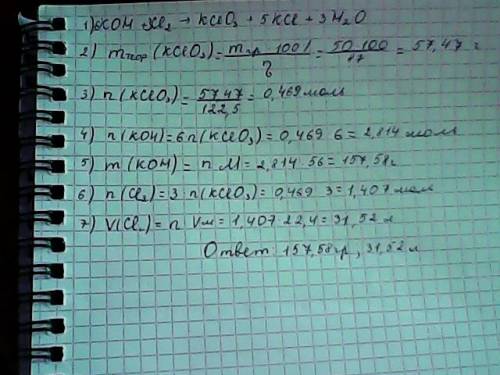 1) 6KOH + 3Cl₂ → KClO₃ + 5KCl + 3H₂O
2) mтеор (KClO₃) = mпр · 100% / η = 50·100 / 87 = 57,47 г
3) n (KClO₃) = 57,47 / 122,5 = 0,469 моль
4) n (KOH) = 6n (KClO₃) = 0,469 · 6 = 2,814 моль
5) m (KOH) = n · M = 2,814 · 56 = 157,58г
6) n (Cl₂) = 3 · n (KClO₃) = 0,469 · 3 = 1,407 моль
7) V (Cl₂) = n · Vм = 1,407 · 22,4 = 31,52 л
Ответ: 157,58гр, 31,52 л